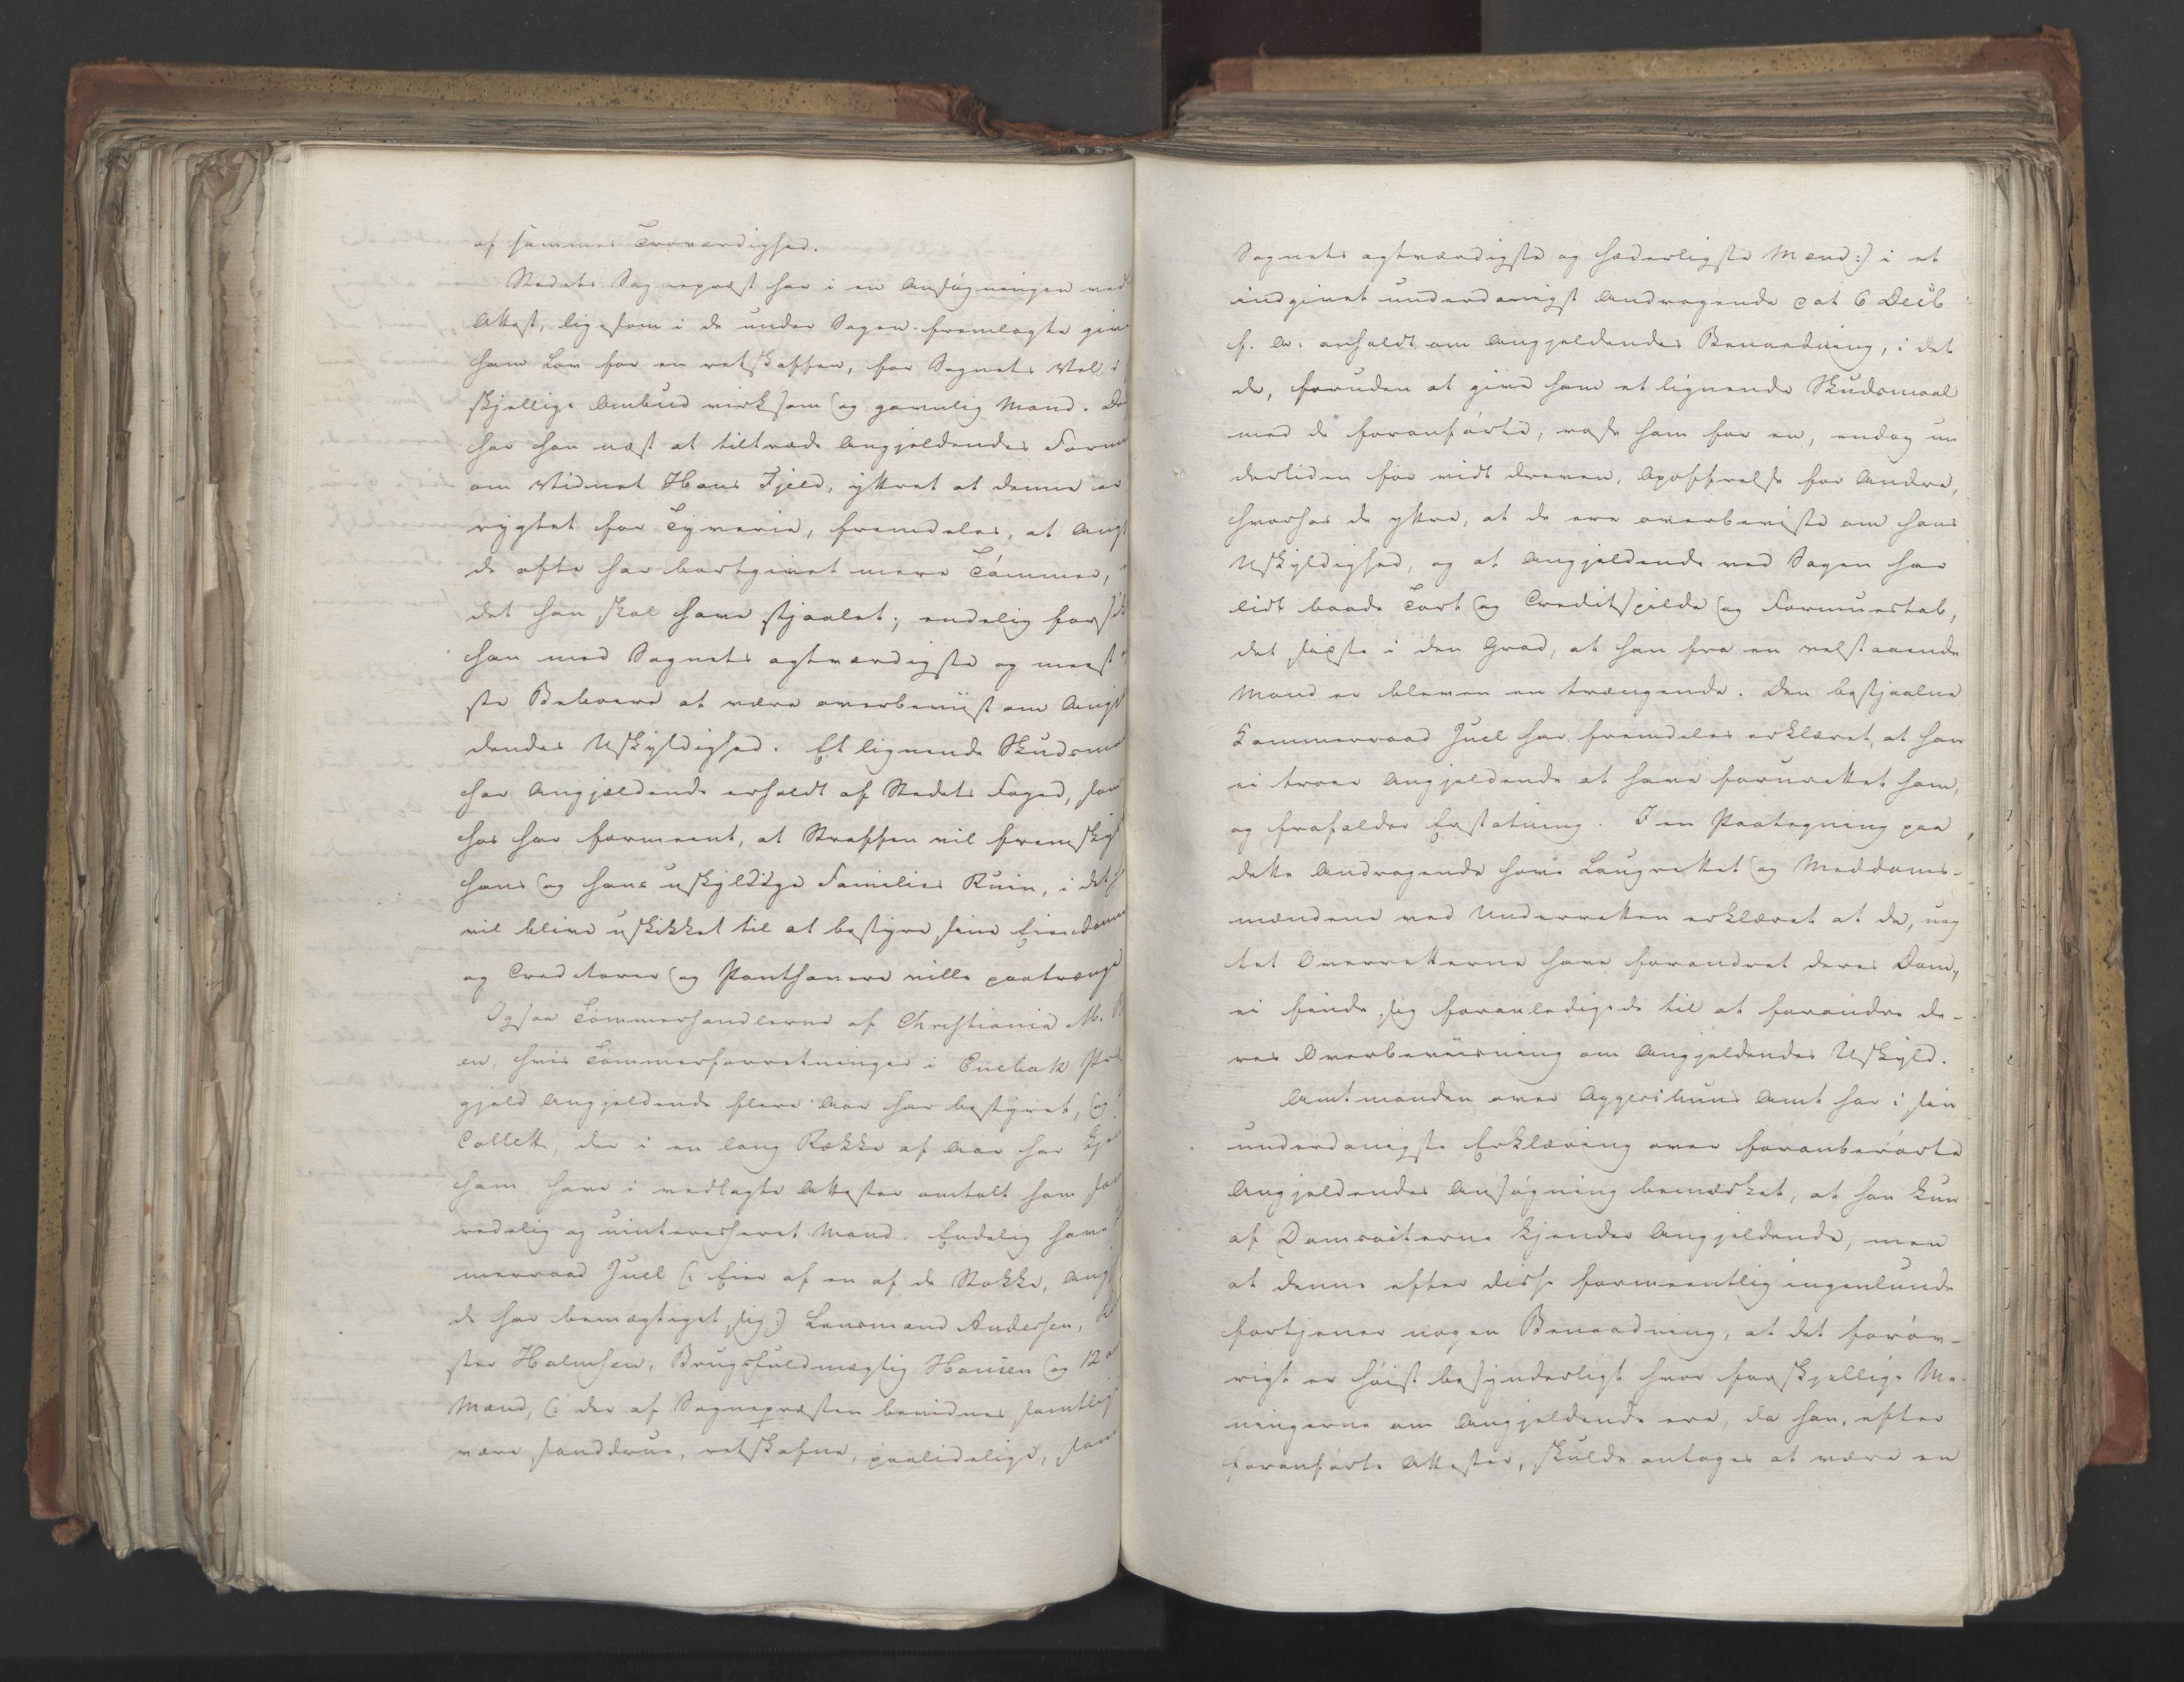 af sammes Troværdighed.
Stedets Sognepræst har i en Ansøgningen ved
Attest, ligesom i de under Sagen fremlagte give
ham Lov for en retskaffen, for Sognets Vel i
skjellige Ombud virksom og gavnlig Mand. De
har han næst at tiltræde Angjeldendes Form
om Vidnet Hans Fjeld, yttret at denne er
rygtet for Tyverie, fremdeles, at Angj
de ofte har bortgivet mere Tømmer,
det han skal have stjaalet; endelig forsik
han med Sognets agtværdigste og meest
ste Beboere at være overbeviist om Angj
dendes Uskyldighed. Et lignende Skudsma
har Angjældende erholdt af Stedets Foged, som
hos har formeent, at Straffen vil fremsky
hans og hans uskyldige Families Ruin, i det h
vil blive uskikket til at bestyre sine Eiendomme
og Creditorer og Panthavere ville paatrænge
Ogsaa Tømmerhandlerne af Christiania M. B
en, hvis Tømmerforretninger i Enebak Præ
gjeld Angjeldende flere Aar har bestyret, og
Collett, der i en lang Række af Aar har kje
ham, have i vedlagte Attester omtalt ham som
redelig og uinteresseret Mand. Endelig have
merraad Juel (: Eier af en af de Stokke, Angj
de har bemægtiget sig:) Lensmand Andersen,
ster Holmsen, Brugsfuldmægtig Hansen og 12
Mænd, (: der af Sognepræsten bevidnes samtlig
være sanddrue, retskafne, paalidelige, som
Sognets agtværdigste og hæderligste Mænd:) i et
indgivet underdanigst Andragende dat 6 Decb
f. A. anholdt om Angjeldendes Benaadning, i det
de, foruden at give ham et lignende Skudsmaal
med de foranførte, rose ham for en, endog un
dertiden for vidt dreven, Opoffrelse for Andre,
hvorhos de yttre, at de ere overbeviste om hans
Uskyldighed, og at Angjeldende ved Sagen har
lidt baade Tort og Creditspilde og Formuestab,
det sidste i den Grad, at han fra en velstaaende
Mand er bleven en trængende. Den bestjaalne
Kammerraad Juel har fremdeles erklæret, at han
ei troer Angjeldende at have forurettet ham,
og frafalder Erstatning. I en Paategning paa
dette Andragende have Laugrettet og Meddoms-
mændene ved Underretten erklæret at de, uag
tet Overretterne have forandret deres Dom,
ei finde sig foranledigede til at forandre de-
res Overbeviisning om Angjeldendes Uskyld.
Amtmanden over Aggershuus Amt har i sin
underdanigste Erklæring over foranberørte
Angjeldendes Ansøgning bemærket, at han kun
af Domsacterne kjender Angjeldende, men
at denne efter disse formeentlig ingenlunde
fortjener nogen Benaadning, at det forøv-
rigt er høist besynderligt hvor forskjellige Me-
ningerne om Angjeldende ere, da han, efter
foranførte Attester, skulde antages at være en